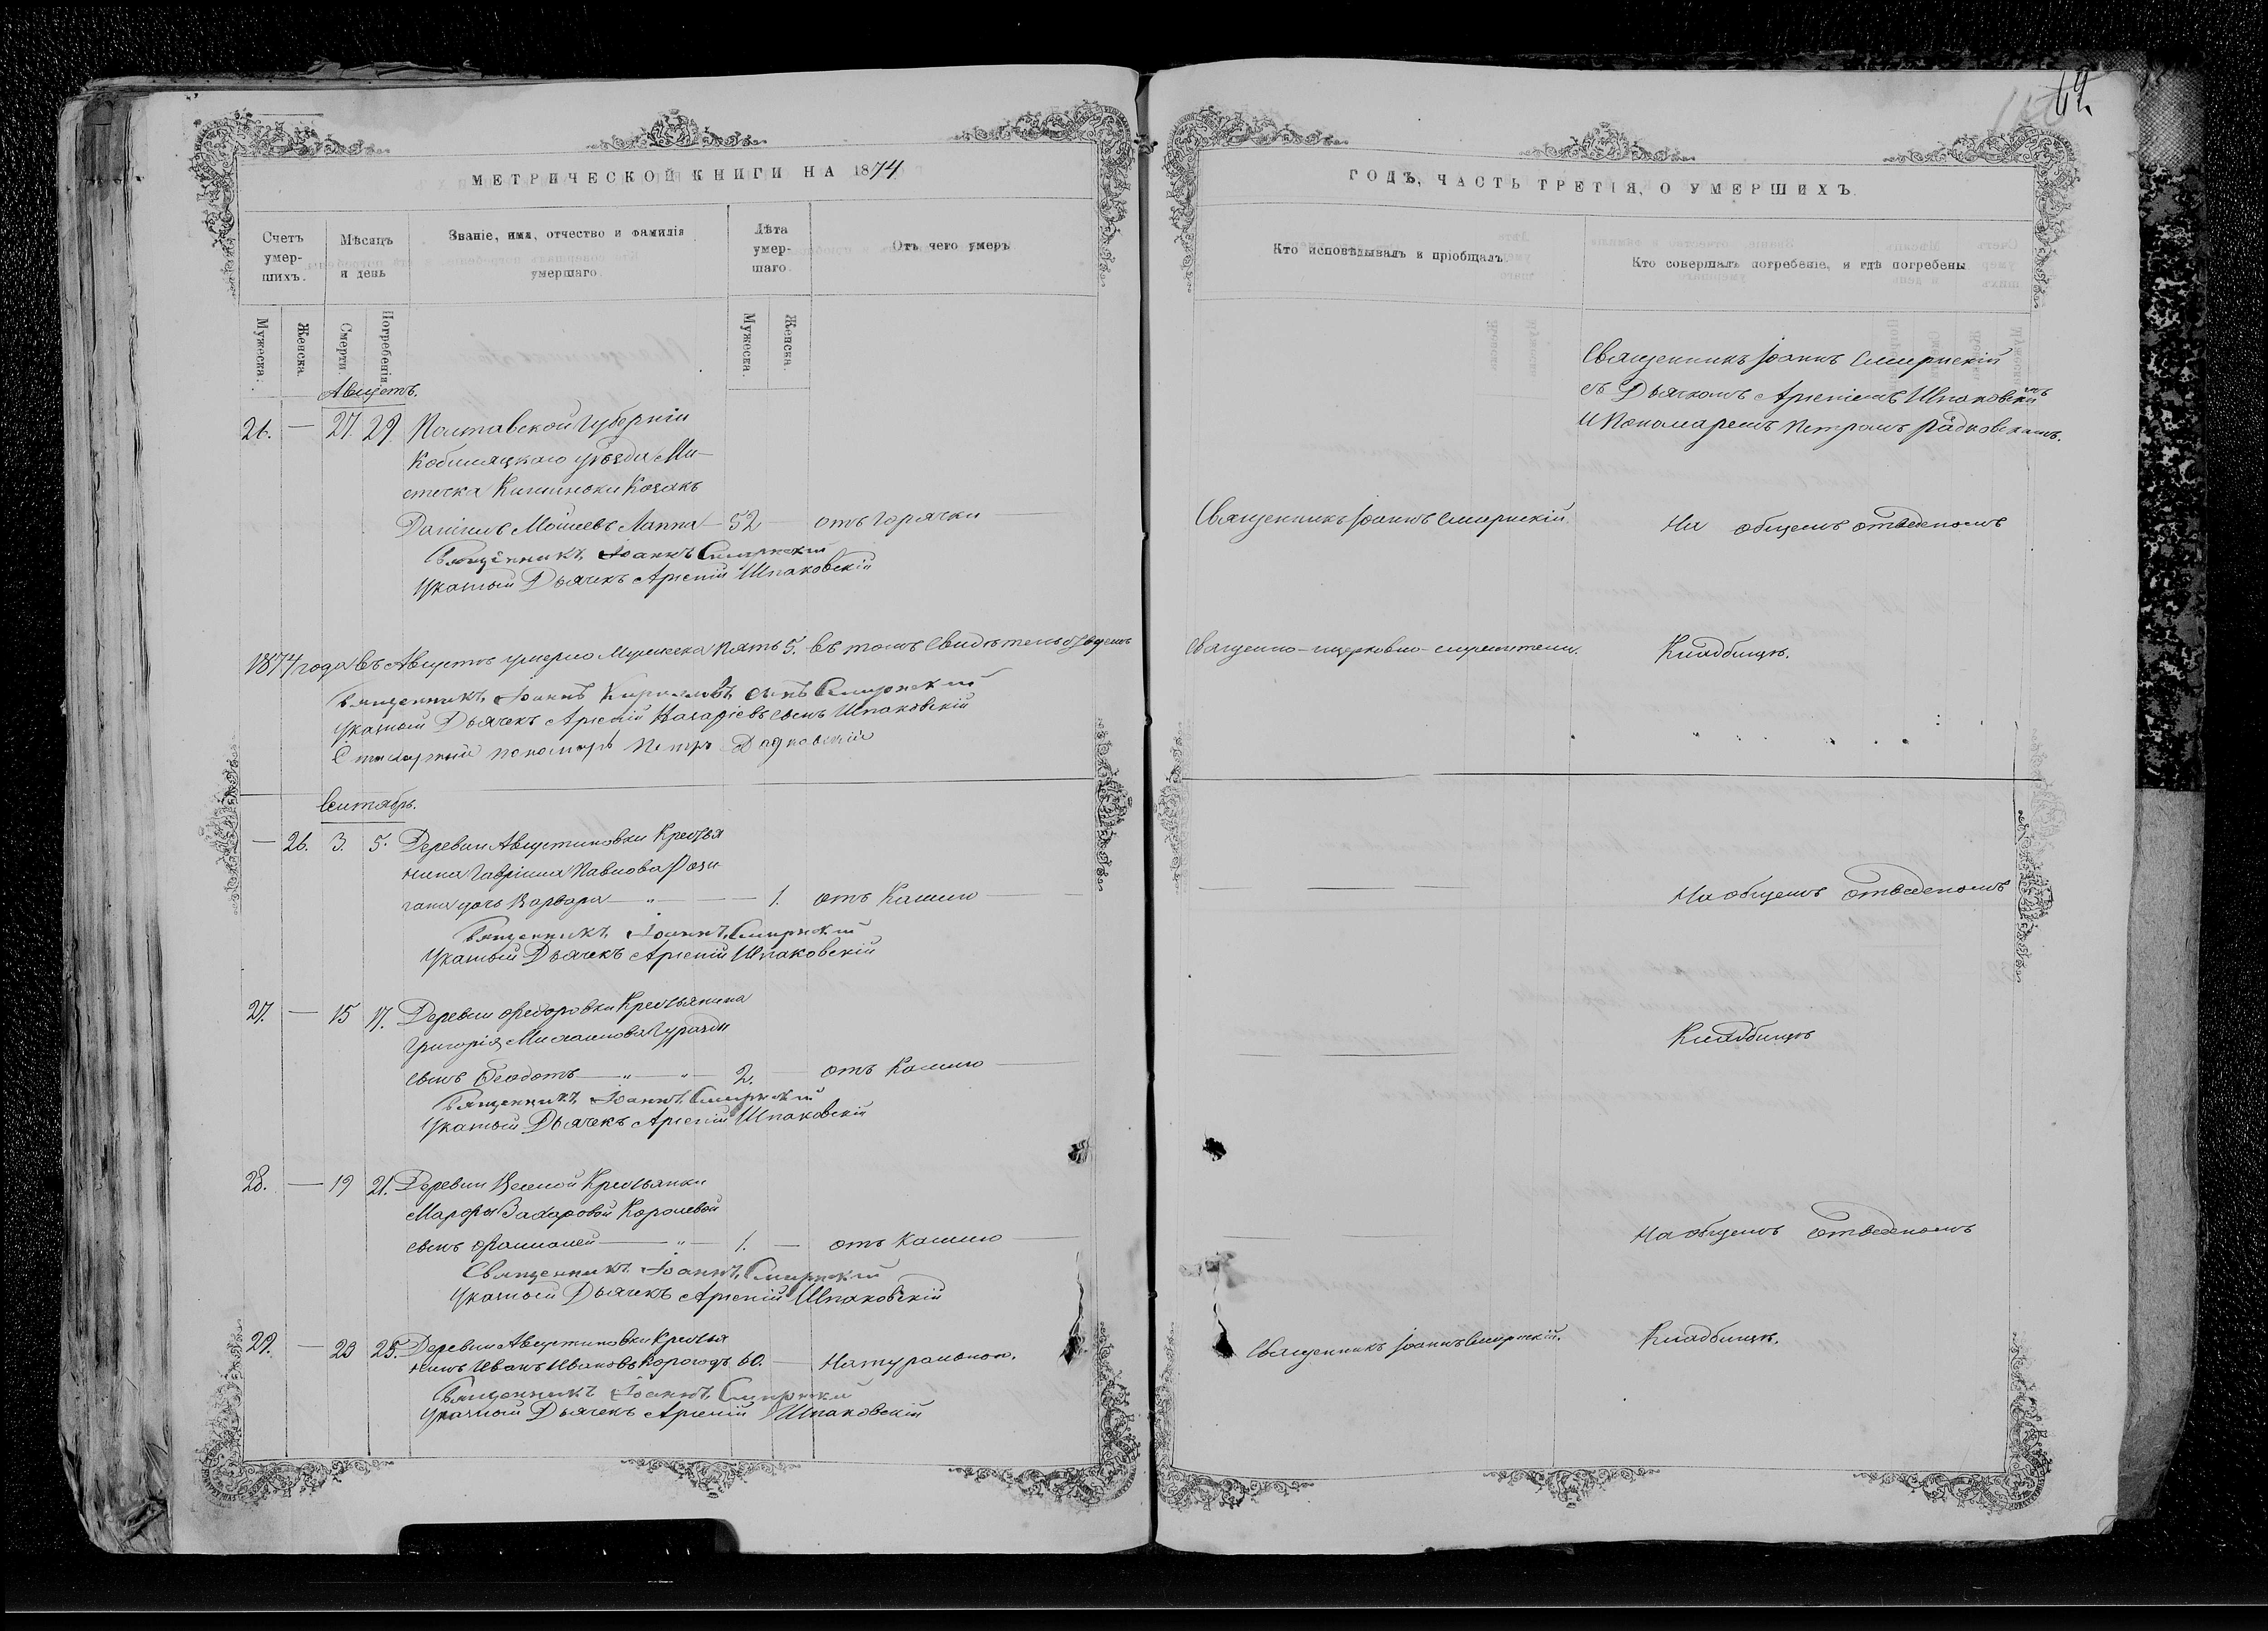 МЕТРИЧЕСКОЙ КНИГИ НА 1874
Счетъ умершихъ.
Мѣсяцъ и день
Званіе, имя, отчество и фамилія умершаго.
Лѣта умершаго.
Отъ чего умеръ
Мужеска.
Женска.
Смерти.
Погребенія.
Мужеска.
Женска.
Августъ.
26. — 27. 29. Полтавской Губерніи
Кобеляцкаго уѣзда Ми-
стечка Кишеньки Козакъ
Даніилъ Моисеевъ Лаппа — 52 — отъ Горячки
Священникъ Іоаннъ Смирнскій
Указный Дьячекъ Арсеній Шпаковскій
1874 года въ Августѣ умерло Мужеска пять 5. въ томъ свидѣтельствуемъ
Священникъ Іоаннъ Кирилловъ сынъ Смирнскій
Указный Дьячекъ Арсеній сынъ Шпаковскій
пономарь Петръ
Сентябрь.
— 26. 3. 5. Деревни Августиновки Крестья
нина Гавріила Павлова
дочь Варвара — " — 1. отъ Кашлю
Священникъ Іоаннъ Смирнскій
Указный Дьячекъ Арсеній Шпаковскій
27. — 15 17. Деревни Федоровки Крестьянина
Григорія Михаилова
сынъ Феодотъ — " — " — 2. — отъ Кашлю
Священникъ Іоаннъ Смирнскій
Указный Дьячекъ Арсеній Шпаковскій
28. — 19 21. Деревни Веселой Крестьянки
Марфы Захаровой Королевой
сынъ — " — 1. — отъ Кашлю
Священникъ Іоаннъ Смирнскій
Указный Дьячекъ Арсеній Шпаковскій
29. — 23 25. Деревни Августиновки Крестья
нинъ Иванъ Ивановъ 60. — Натурально.
Священникъ Іоаннъ Смирнскій
Указный Дьячекъ Арсеній Шпаковскій
ГОДЪ, ЧАСТЬ ТРЕТІЯ, О УМЕРШИХЪ.
Кто исповѣдывалъ и пріобщалъ.
Кто совершалъ погребеніе, и гдѣ погребены
Священникъ Іоаннъ Смирнскій
съ Дьячкомъ Арсеніемъ Шпаковскимъ
и Пономаремъ Петромъ
Священникъ Іоаннъ Смирнскій.
На общемъ отведеномъ
Священно-церковно-служители.
Кладбищѣ.
На общемъ отведеномъ
Кладбищѣ
На общемъ отведеномъ
Священникъ Іоаннъ Смирнскій.
Кладбищѣ.